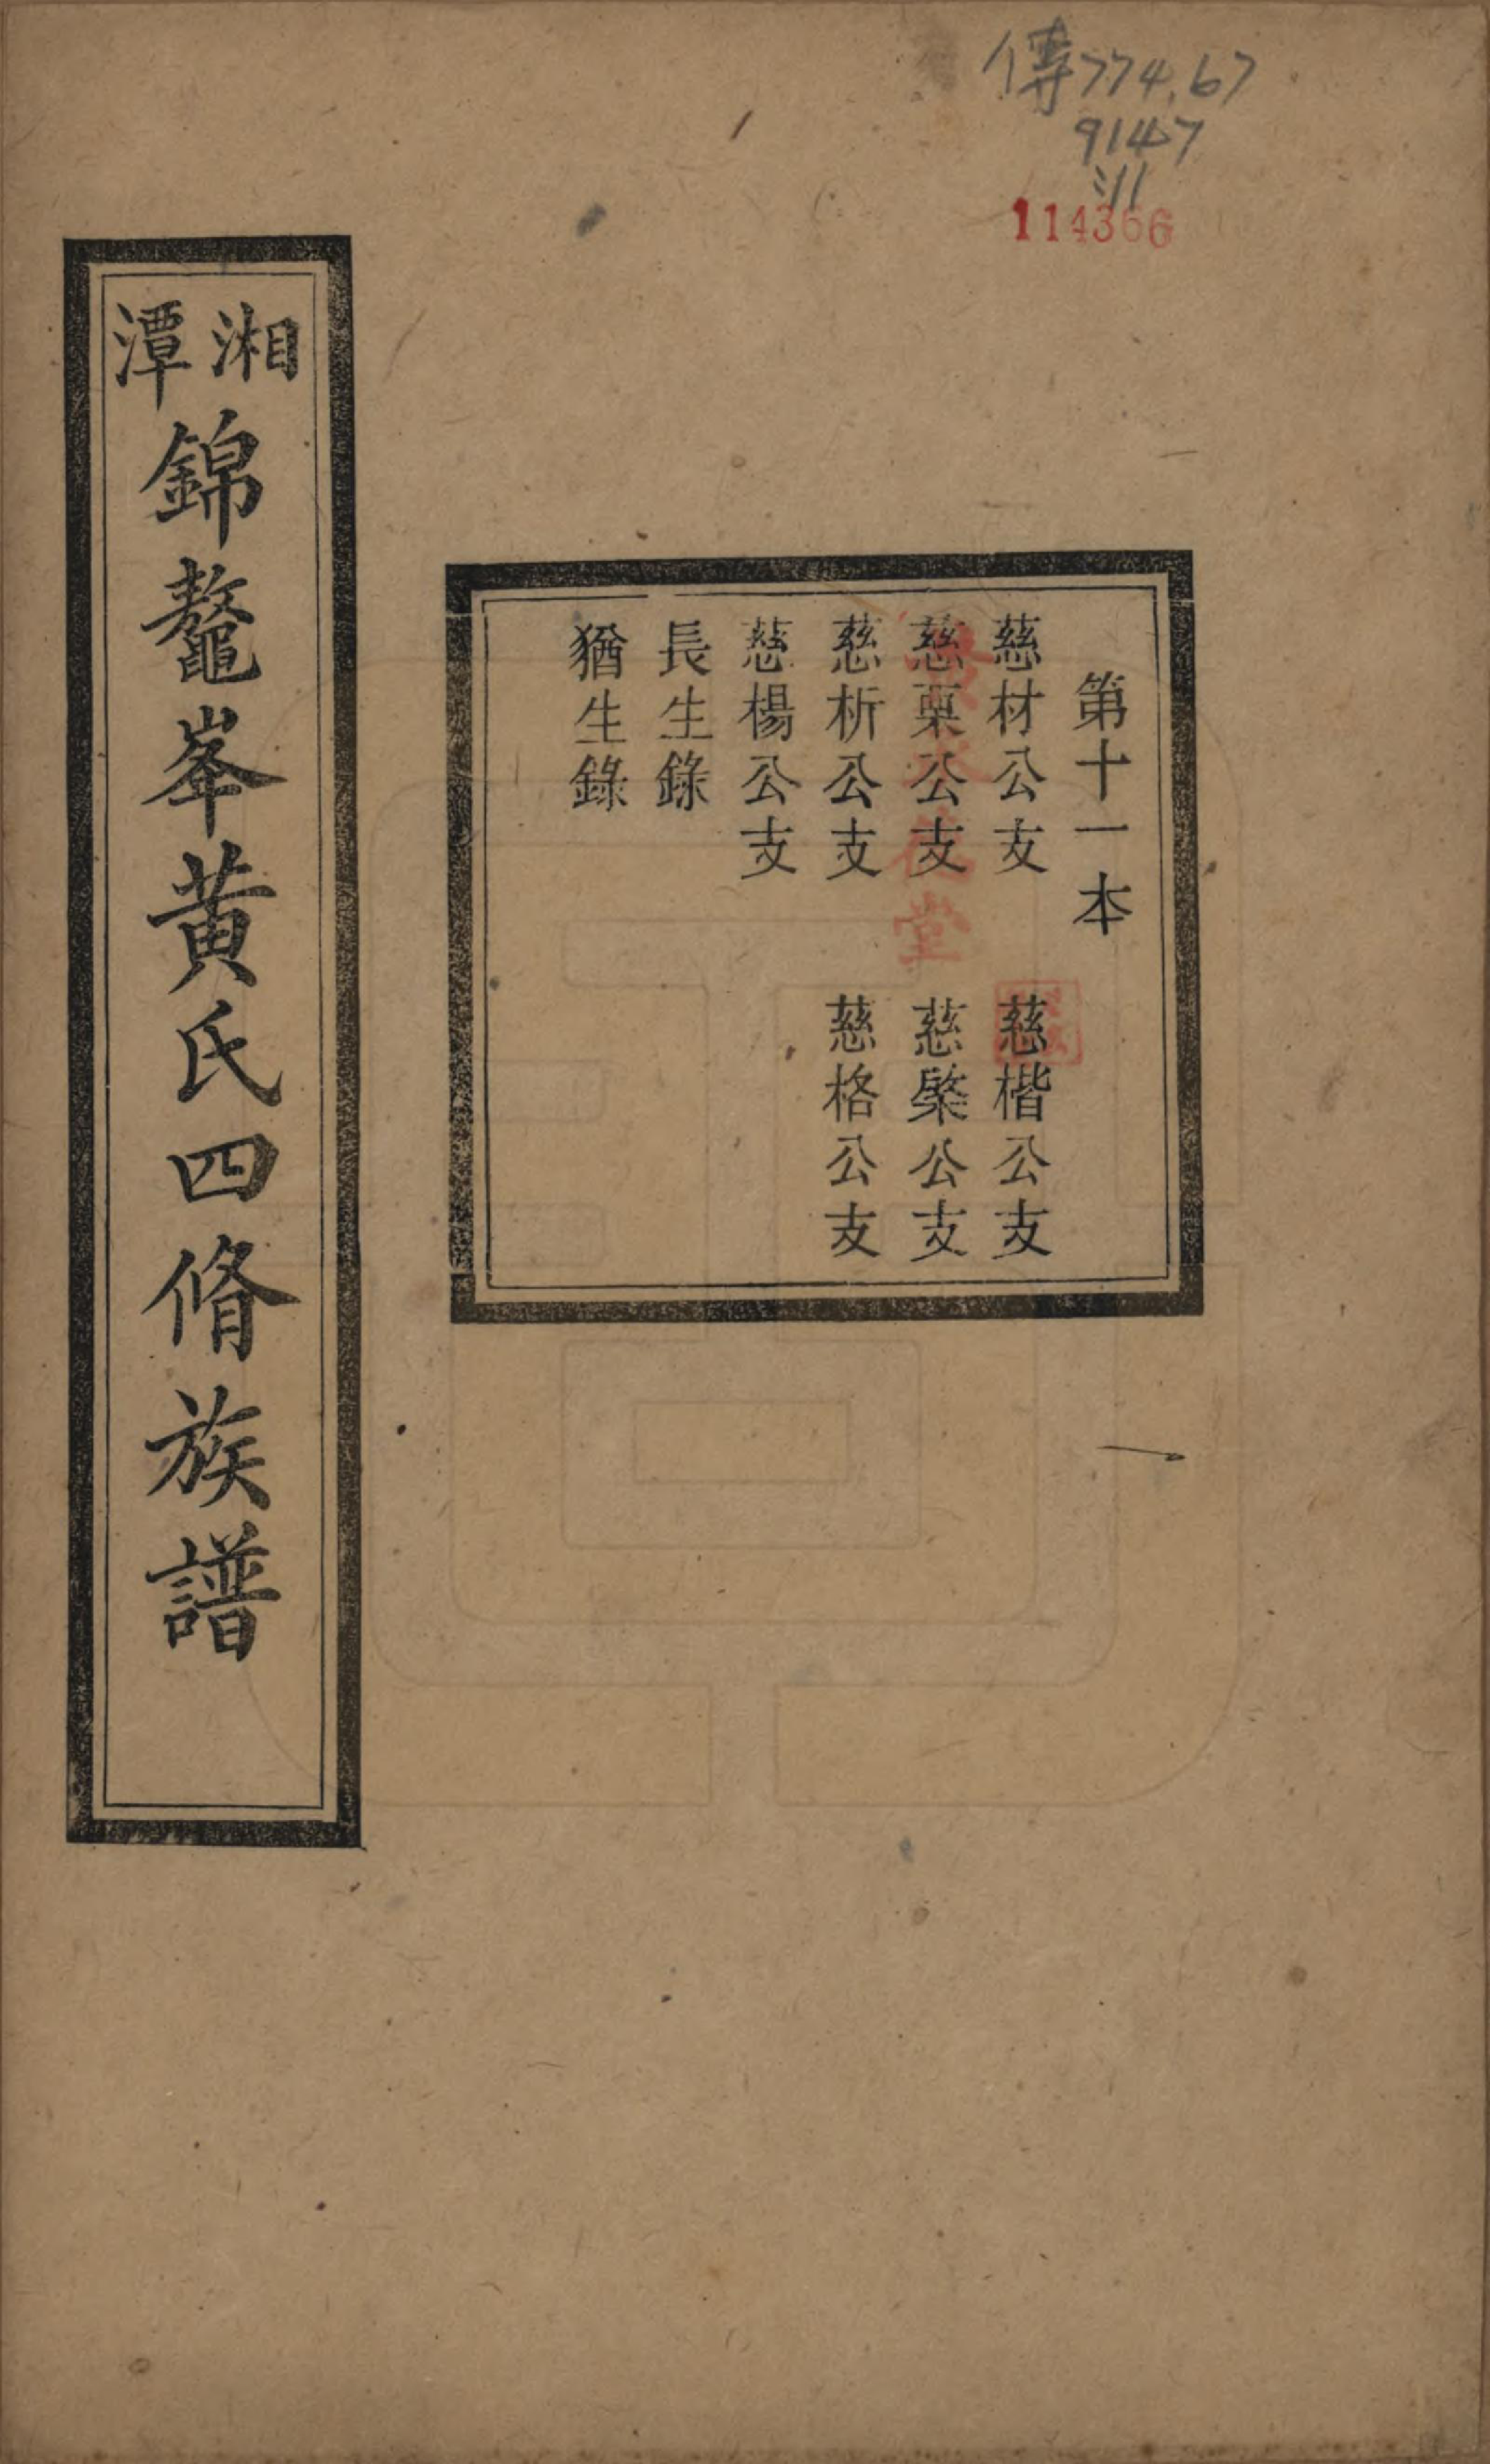 傳774.67
9147
:11
114366
湘潭錦鼇峯黃氏四脩族譜
第十一本
慈材公支 慈楷公支
慈㮚公支 慈棨公支
慈析公支 慈格公支
慈楊公支
長生錄
猶生錄
堂